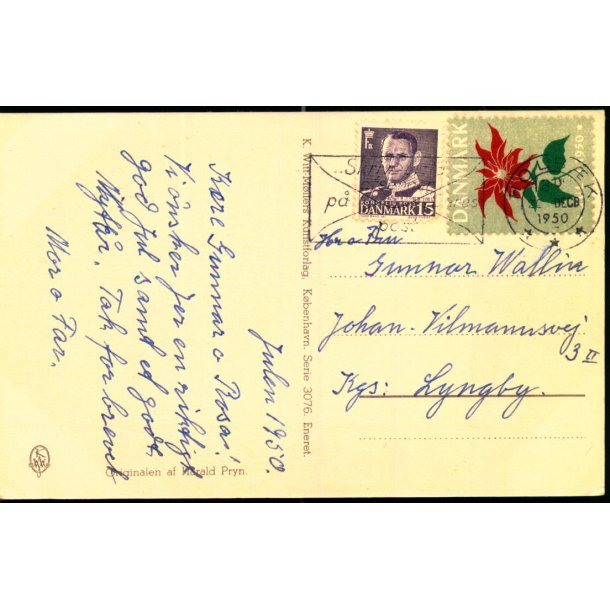 Julen 1950.
Kære Gunnar o Rosa!
Vi ønsker Jer en rigtig
god Jul samt et godt
Nytår. Tak for brevet
Mor o Far.
Originalen af Harald Pryn.
K. Witt-Møllers Kunstforlag, København. Serie 3076. Eneret.
DANMARK 15
DANMARK
1950
på
post
HOLBÆK
DECB
1950
Hr o Fru
Gunnar Wallin
Johan-Vilmannsvej
3 II
Kgs: Lyngby.